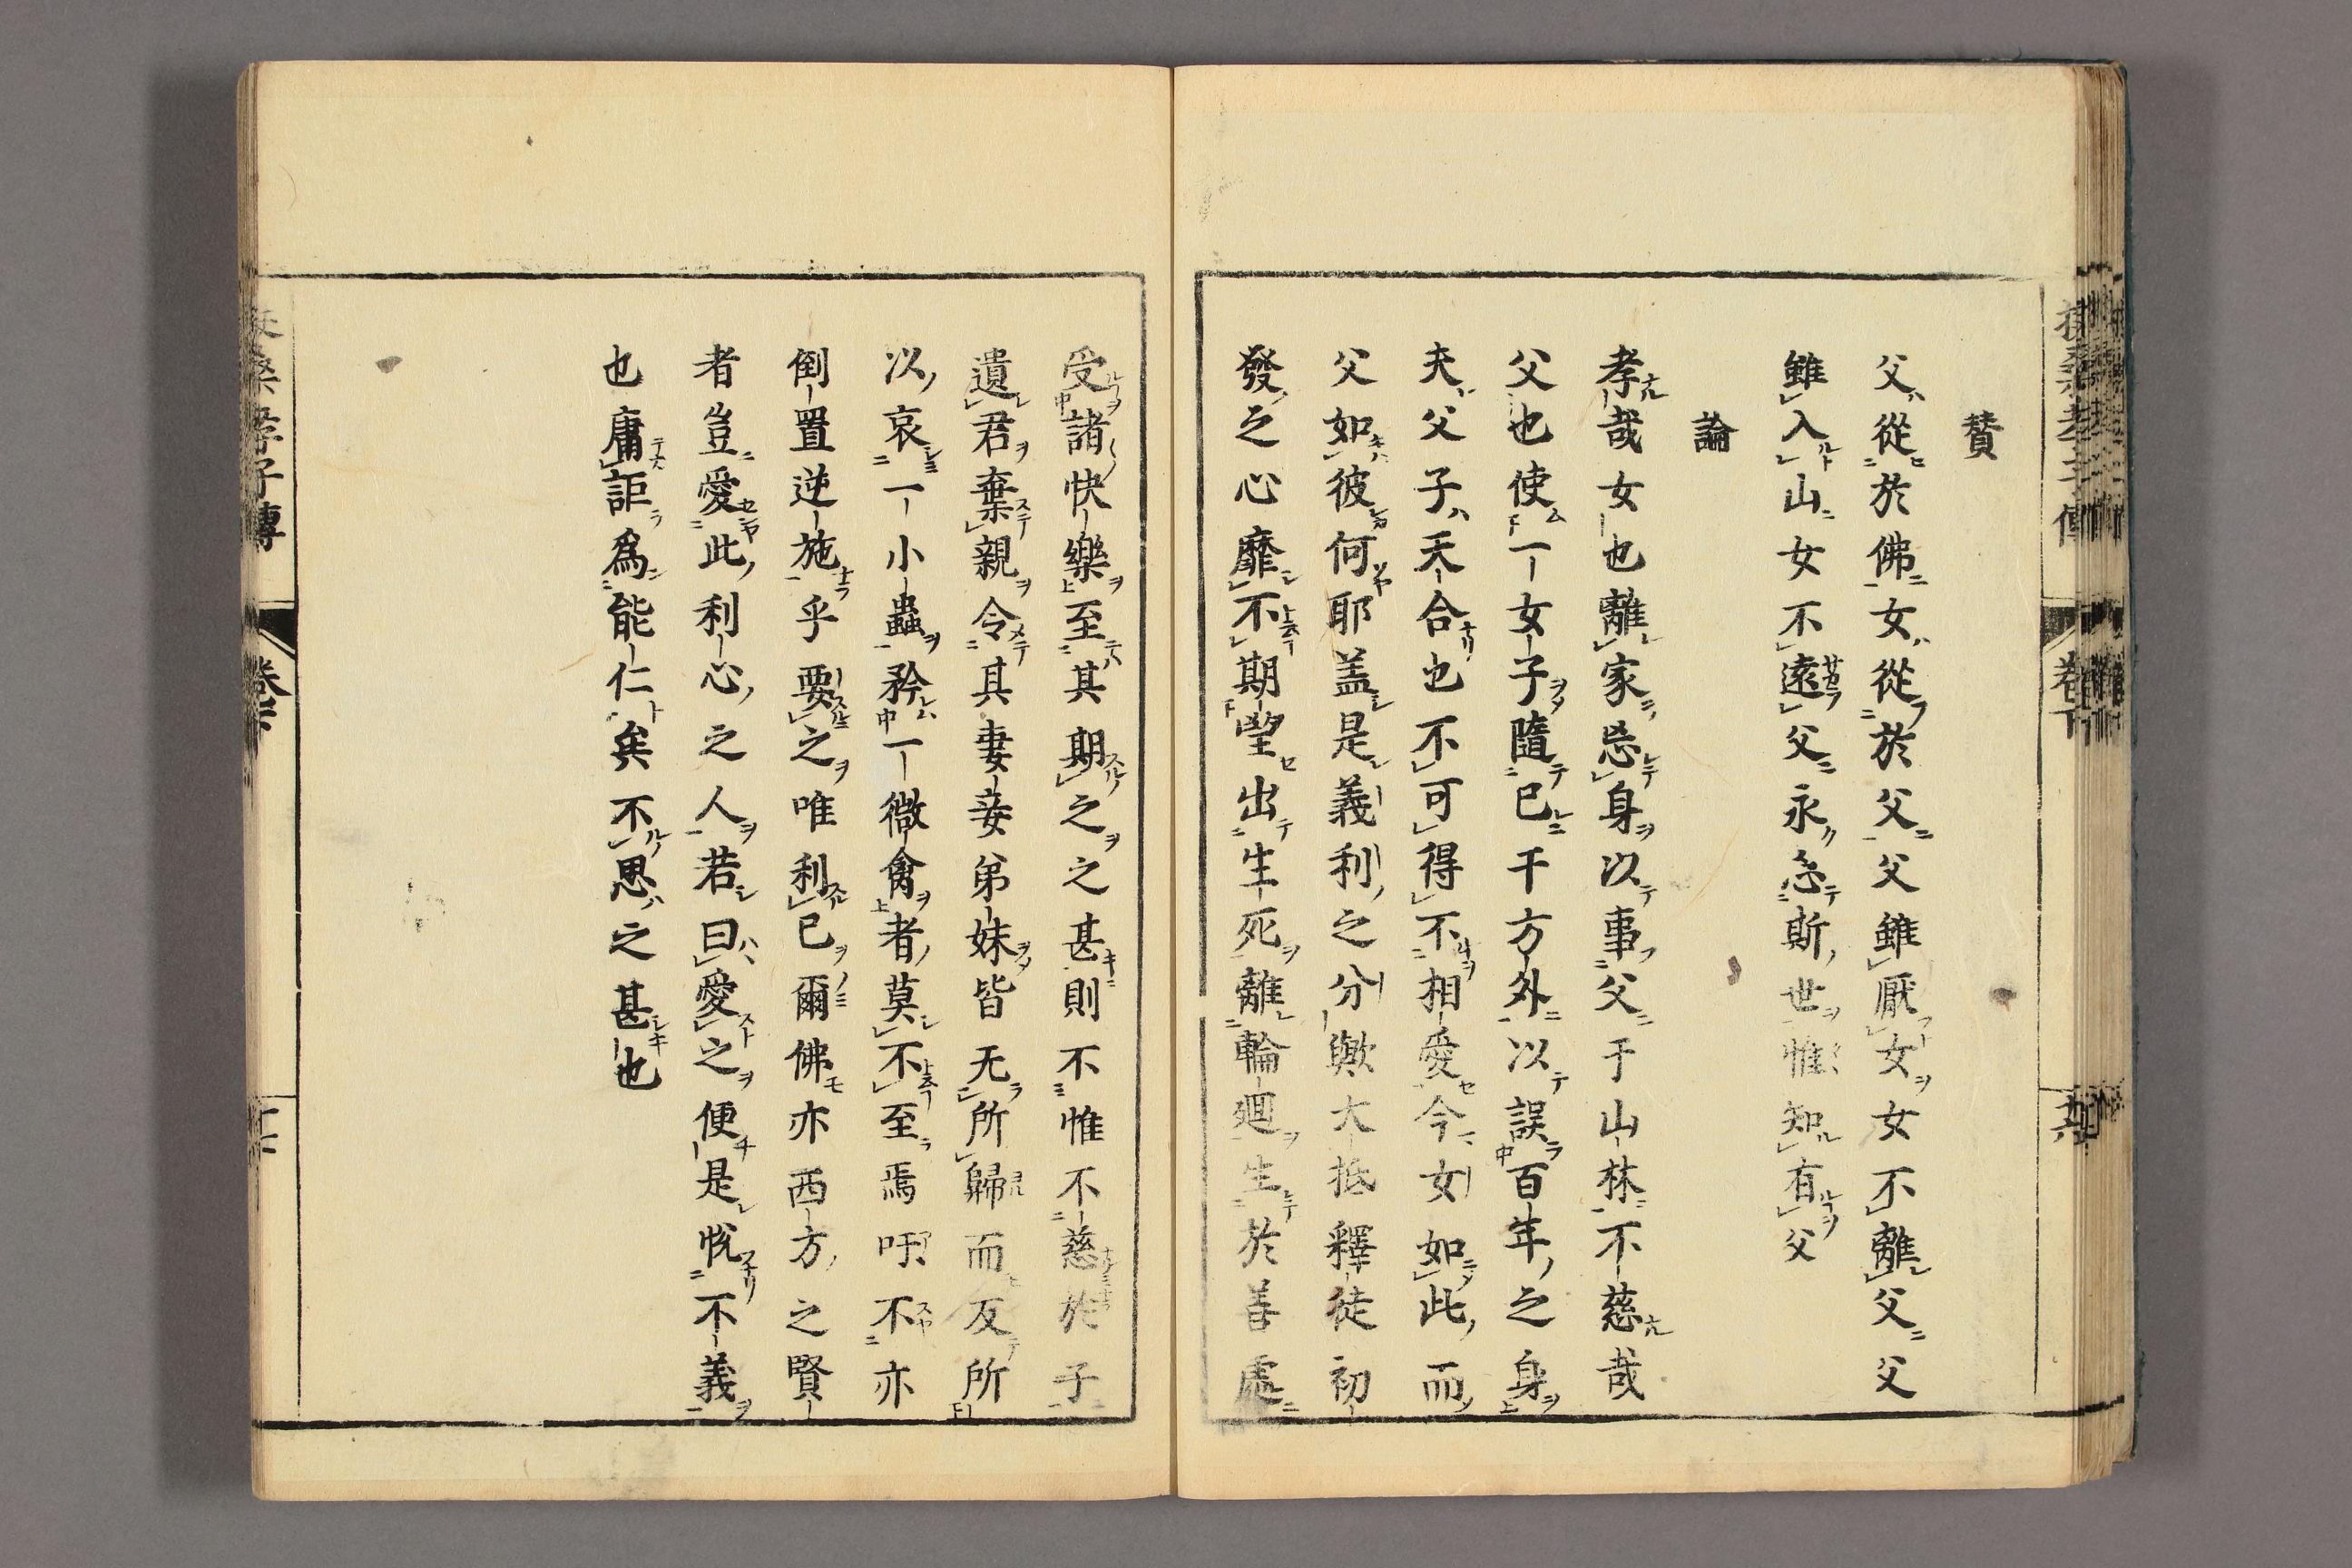 賛
父從於佛女從於父父雖厭女女不離父父
雖入山女不遠父永忘斯世惟知有父
論
孝哉女也離家忘身以事父于山林不慈哉
父也使一女子隨已千方外以誤百年之身
夫父子天合也不可得不相愛今女如此而
父如彼何耶盖是義利之分歟大抵釋徒初
發之心靡不期望出生死離輪廻生於善處
受諸快樂至其期之之甚則不惟不慈於子
遺君棄親令其妻妾弟妹皆无所歸而反所
以哀一小蟲矜一微禽者莫不至焉吁不亦
倒置逆施乎要之唯利已爾佛亦西方之賢
者豈愛此利心之人若曰愛之便是悅不義
也庸詎爲能仁矣不思之甚也
扶桑孝子傳
卷下